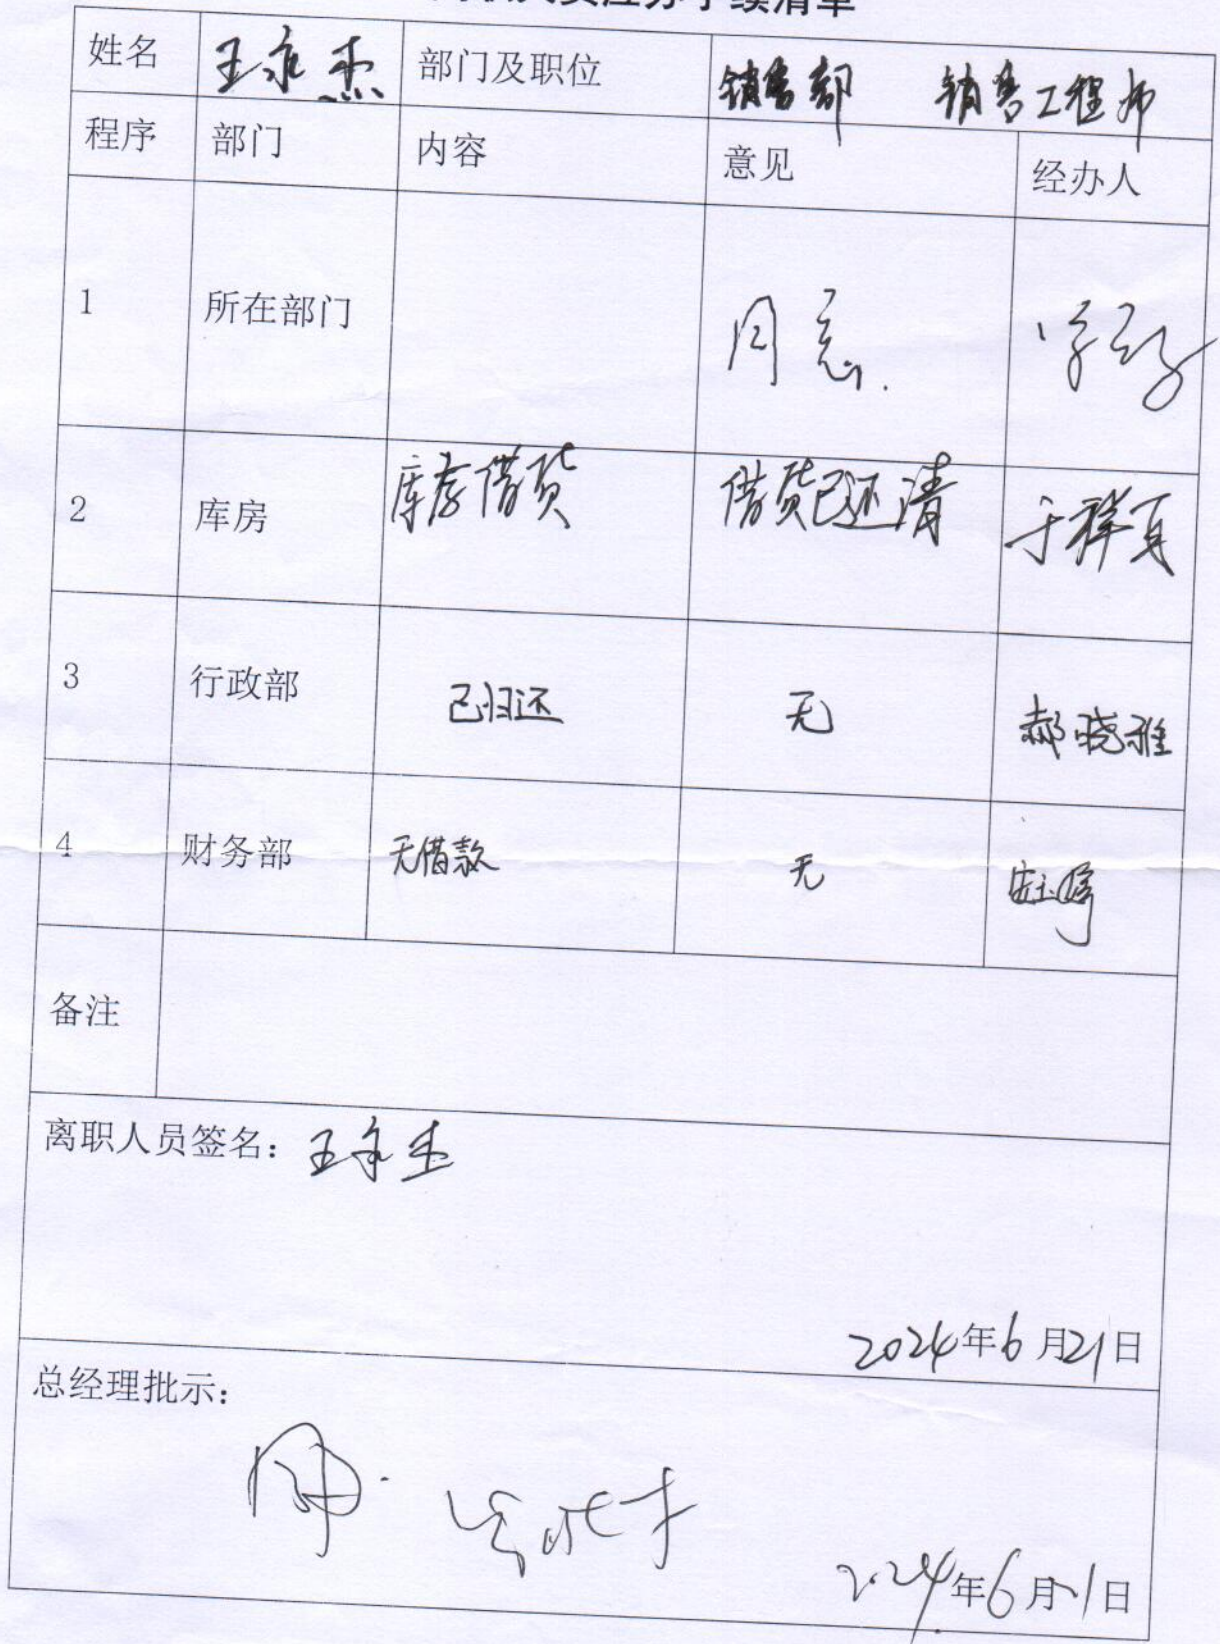 姓名 王永杰 部门及职位 销售部 销售工程师
程序 部门 内容 意见 经办人
1 所在部门 同意
2 库房 库存借货 借货已还清 于祥夏
3 行政部 已归还 无 郝晓雅
4 财务部 无借款 无
备注
离职人员签名：王永杰
2024年6月21日
总经理批示：
2024年6月21日